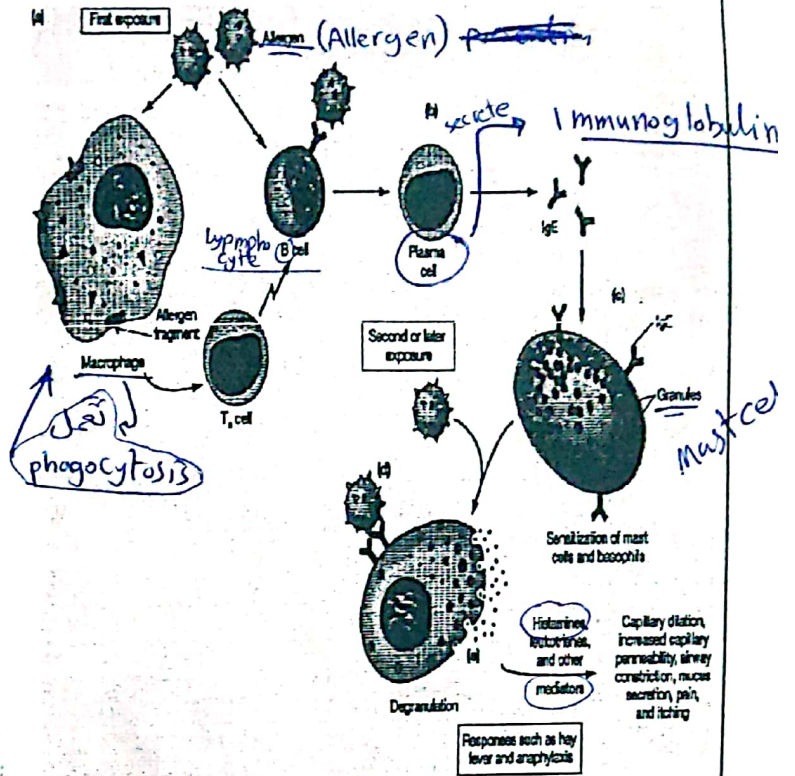 (a)
First exposure
Allergen (Allergen)
(b)
secrete
Immunoglobulin
IgE
Lypmpho
cyte
B cell
Plasma
cell
(c)
Allergen
fragment
Macrophage
Second or later
exposure
IgE
Granules
Mast cel
phagocytosis
cell
(d)
Sensitization of mast
cells and basophils
Histamines,
leukotrienes,
and other
mediators
(e)
Capillary dilation,
increased capillary
permeability, airway
constriction, mucus
secretion, pain,
and itching
Degranulation
Responses such as hay
fever and anaphylaxis